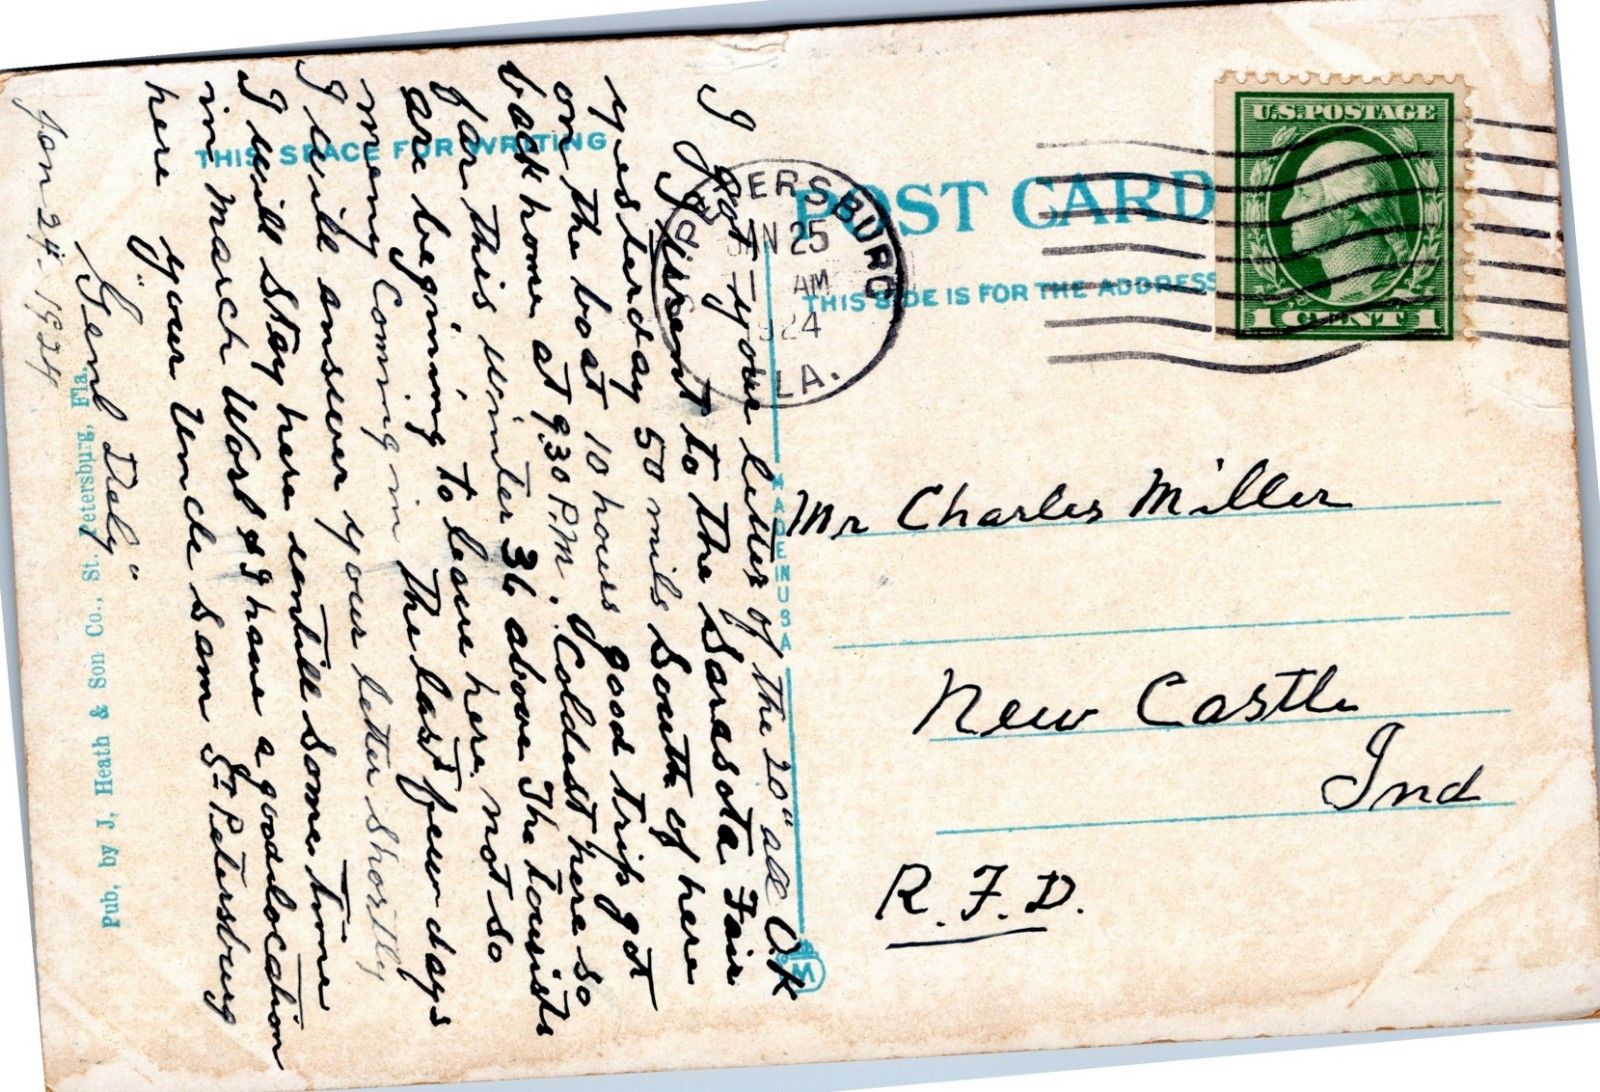 U.S. POSTAGE
1 CENT 1
POST CARD
THIS SPACE FOR WRITING
THIS SIDE IS FOR THE ADDRESS
PETERSBURG
JAN 25
AM
1924
FLA.
I got your letter of the 20" all O.K
I went to the Sarasota Fair
yesterday 50 mils South of here
on the boat 10 hours good trip got
back home at 9.30 P.M. Coldest here so
far this winter 36 above The tourists
are begining to leave here, not so
meny Coming in The last few days
I will answer your letter shortly
I will stay here untill some time
in March Worl & I have a good location
here your Uncle Sam St Petersburg
"Genl Dely"
Jan 24" 1924
Mr Charles Miller
New Castle
Ind
R.F.D.
MADE IN USA
M
Pub. by J. Heath & Son Co., St. Petersburg, Fla.